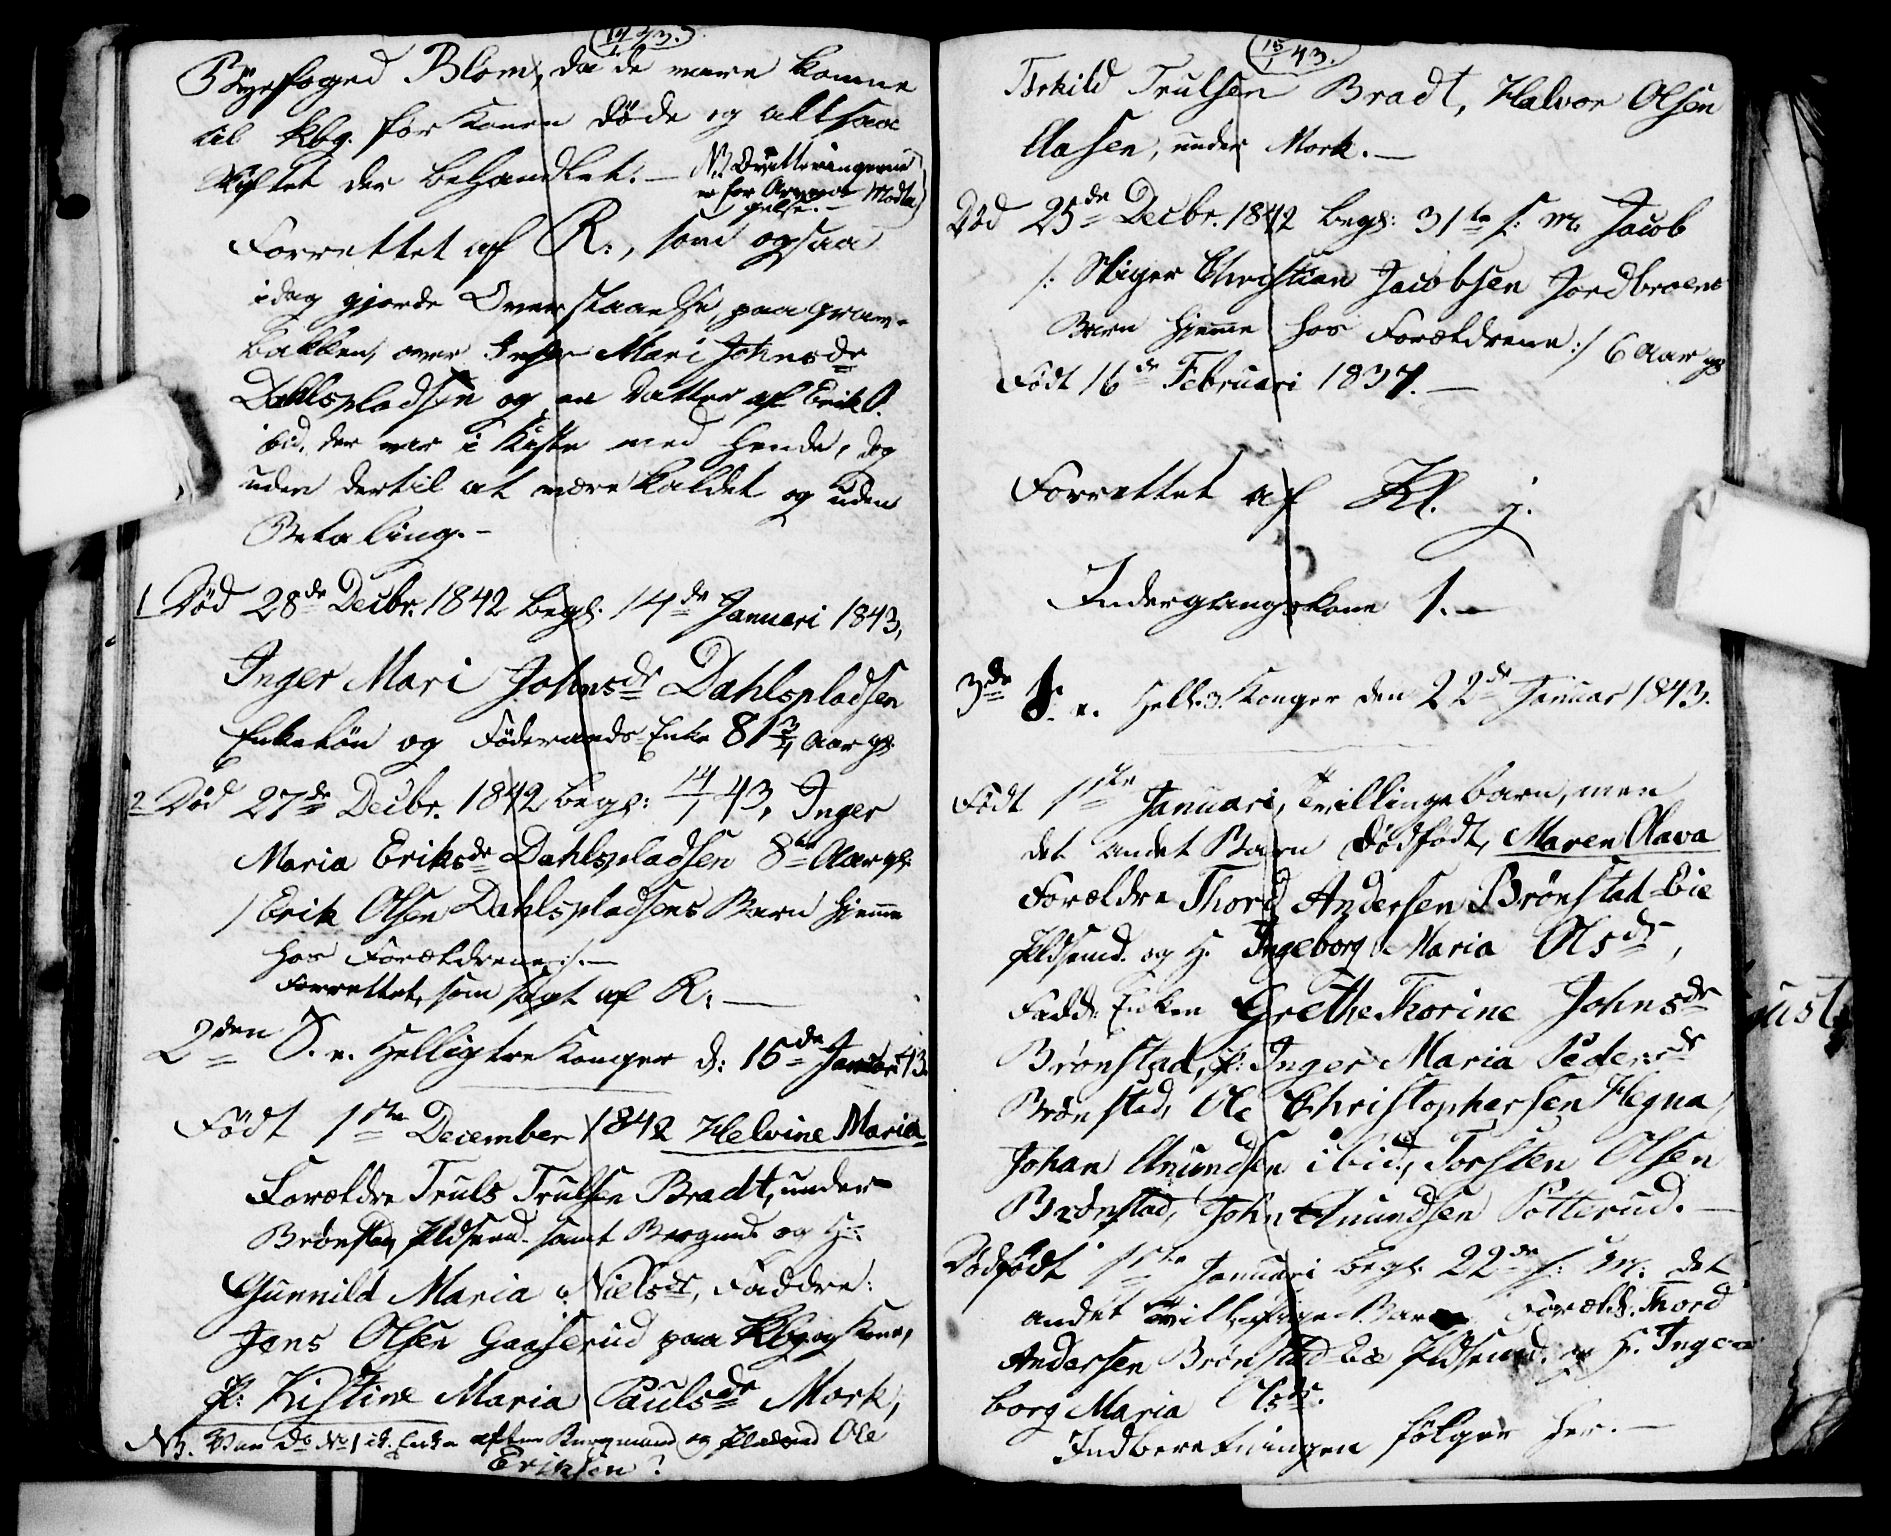 14/1 43.
Byefoged Blom, da de vare komne
til Kbg. før Konen døde og altsaa
Skiftet der behandlet. —
NB Oprettningerne
er før Modta
gelse. —
Forrettet af R:, som ogsaa
idag gjorde Overstaaelse, paa Grav-
bakken, over Inger Mari Johnsdr
Dahlspladsen og en Datter af Erik O.
ibid. der var i Kiste med hende, dog
uden dertil at være kaldet og uden
Betaling. –
1 Død 28de Decbr. 1842 begr. 14de Januari 1843,
Inger Mari Johnsdr Dahlspladsen
Enkekön og Föderaads-Enke 81 3/4 Aar gl.
2 Död 27de Decbr. 1842 begr: 14/1 43, Inger
Maria Eriksdr Dahlspladsen 8te Aar gl.
/ Erik Olsen Dahlspladsens Barn hjemme
hos Forældrene :/. —
Forrettet, som sagt af R: —
2den S. e. Helligtrekonger d: 15de Januar 43.
Født 1ste December 1842 Helvine Maria
Forældre Truls Trulsen Bradt, under
Brønstad Pldsmd. samt Bergmd. og H:
Gunnild Maria Nielsdr, Faddre:
Jens Olsen Gaaserud paa Kbg og Kone,
P: Kistine Maria Paulsdr Mork,
NB. Var do No 1 Enke efter Bergmand og Pladsmd Ole
Eriksen?
15/1 43.
Torkild Trulsen Bradt, Halvor Olsen
Aasen, under Mork. —
Död 25de Decbr. 1842 begr: 31te s: M. Jacob
/: Stiger Christian Jacobsen Jordbroens
Barn hjemme hos Forældrene :/ 6 Aar gl
Født 16de Februari 1837. —
Forrettet af Kl. j.
Indergangskone 1. —
3de S. e. Hell. 3 Konger den 22de Januar 1843.
Født 1ste Januari, Tvillingebarn, men
det andet Barn dödfödt, Maren Olava
Forældre Thord Andersen Brønstad Eie
Pldsmd. og H. Ingeborg Maria Olsdr,
Fadd: Enken Grethe Thorine Johnsdr
Brønstad, P: Inger Maria Pedersdr
Brønstad, Ole Christophersen Hegna,
Johan Amundsen ibid., Torsten Olsen
Brønstad, John Amundsen Potterud. —
Dødfødt 1ste Januari begr. 22de s: M: det
andet Tvillinge Barn Foræld. Thord
Andersen Brønstad Eie Pldsmd. og H. Inge-
borg Maria Olsdr.
Indberetningen følger her. —